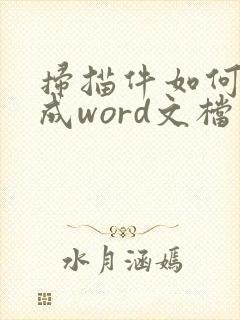 掃描件如何
成word文檔
水月涵嫣